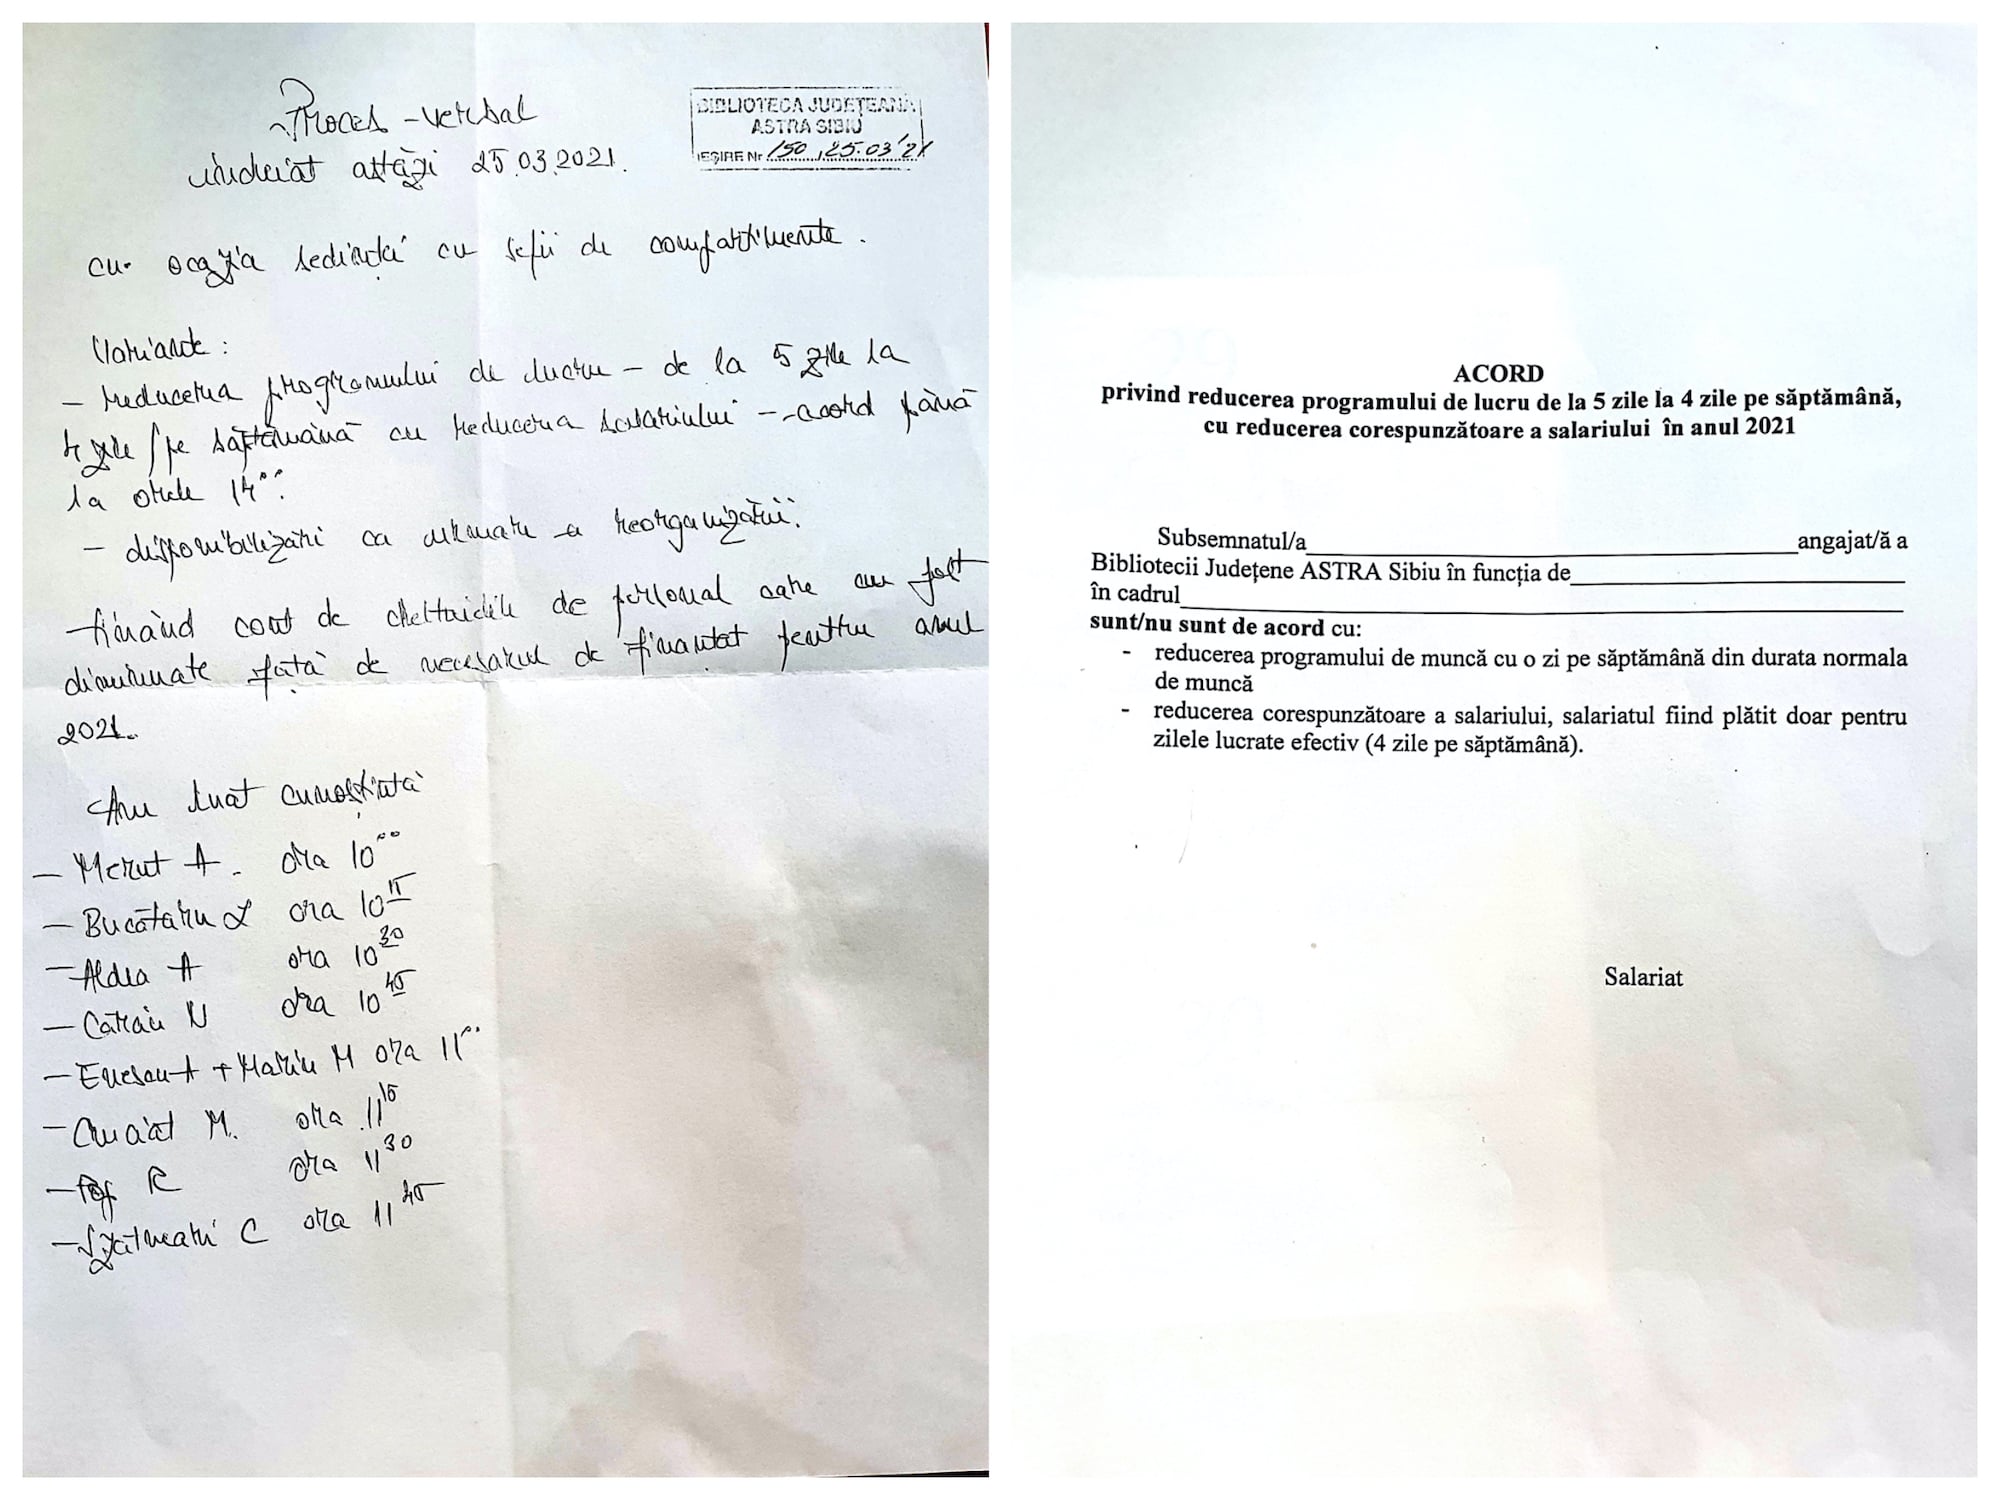 Proces-verbal
încheiat astăzi 25.03.2021.
BIBLIOTECA JUDEȚEANĂ
ASTRA SIBIU
IEȘIRE Nr 150, 25.03'21
cu ocazia ședință cu șefii de compartimente.
Variante:
- reducerea programului de lucru - de la 5 zile la
4 zile /pe săptămână cu reducerea salariului - acord până
la orele 14⁰⁰.
- disponibilizări ca urmare a reorganizării.
ținând cont de cheltuielile de personal care au fost
diminuate față de necesarul de finanțat pentru anul
2021.
Am luat cunoștință
- Merut A. ora 10⁰⁰
- Bucătaru L ora 10¹⁵
- Aldea A ora 10³⁰
- Catrău N ora 10⁴⁵
- Enescu A + Marin M ora 11⁰⁰
- M. ora 11¹⁵
- Pop R ora 11³⁰
- Szatmari C ora 11⁴⁵
ACORD
privind reducerea programului de lucru de la 5 zile la 4 zile pe săptămână,
cu reducerea corespunzătoare a salariului în anul 2021
Subsemnatul/a angajat/ă a
Bibliotecii Județene ASTRA Sibiu în funcția de
în cadrul
sunt/nu sunt de acord cu:
- reducerea programului de muncă cu o zi pe săptămână din durata normala
de muncă
- reducerea corespunzătoare a salariului, salariatul fiind plătit doar pentru
zilele lucrate efectiv (4 zile pe săptămână).
Salariat